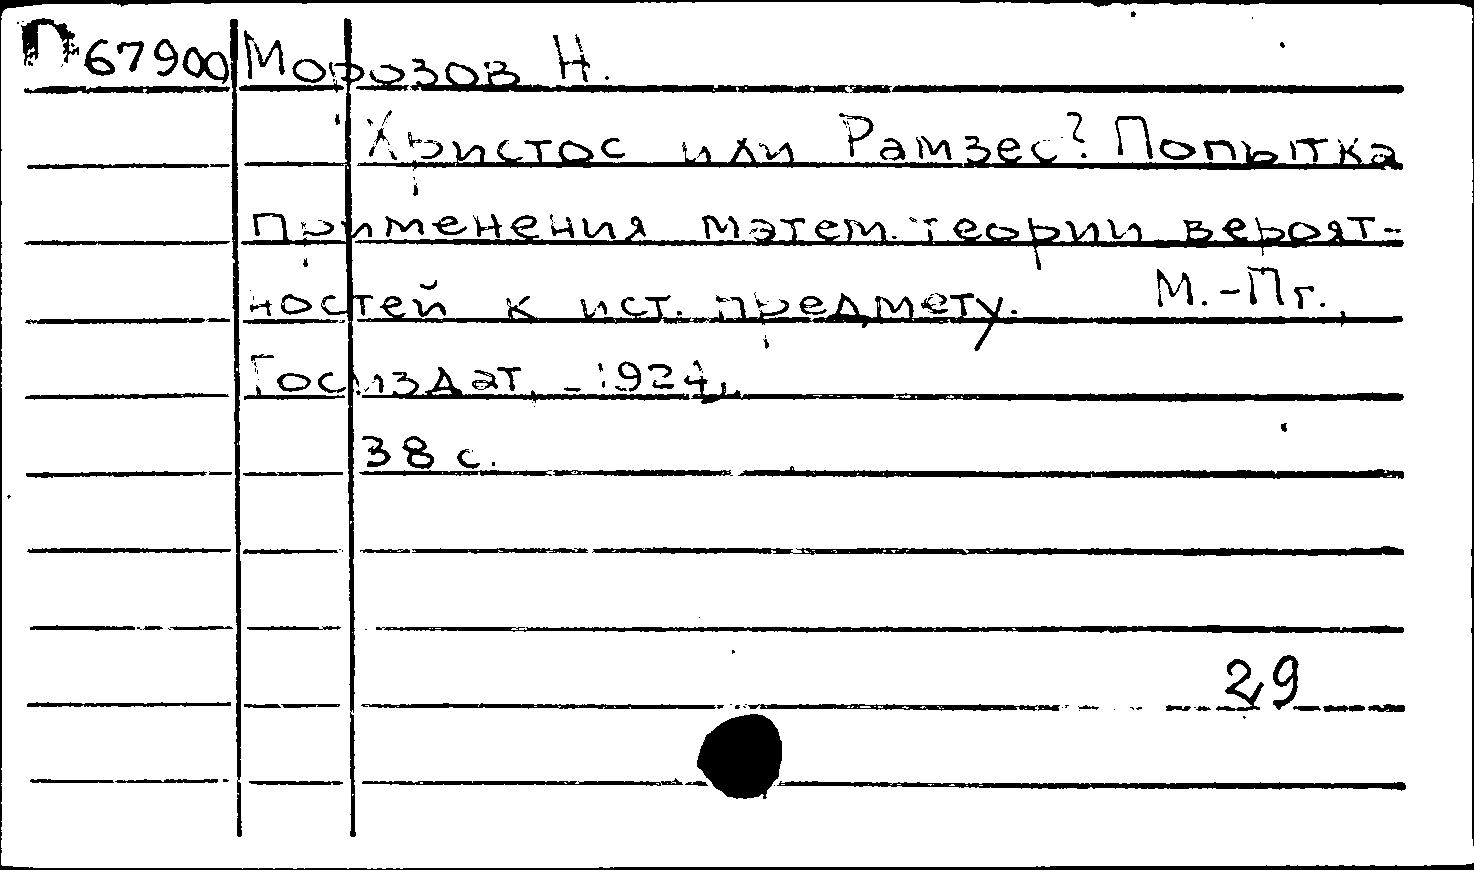 П67900 Морозов Н.
Христос или Рамзес? Попытка
применения матем. теории вероят-
ностей к ист. предмету. М.-Пг.,
Госиздат, -1924,.
38 с.
29